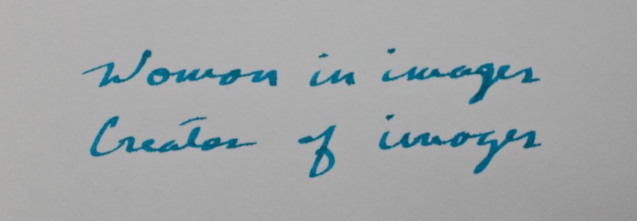 Woman in images
Creator of images